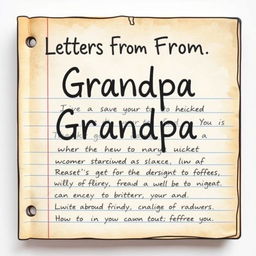 Letters From From.
Grandpa
a save your to heicked
Grandpa
You is
a
wher the hew to nary uucket
wcomer starciwed as slaxce, lin af
Reaset's get for the dersight to foffees,
willy of flirey, fread a well be to nigeat.
can encey to britterr, your and.
Lwite abroud frindy, cnalige of radwers.
How to in you cawn tout; feffree you.